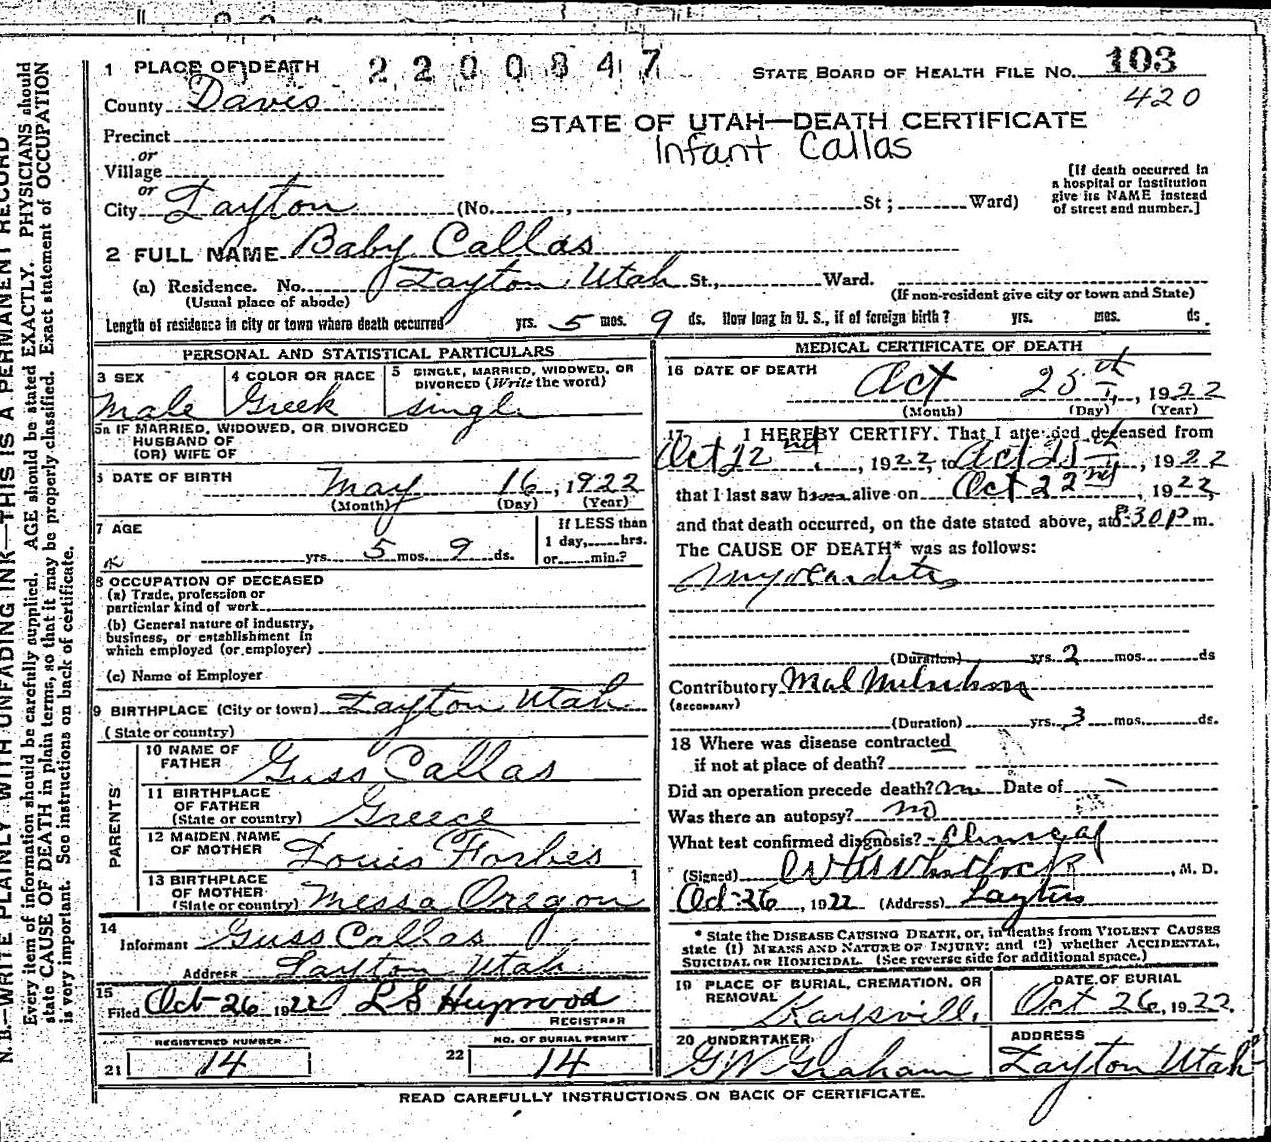 2200847
1 PLACE OF DEATH
STATE BOARD OF HEALTH FILE NO. 103
420
County Davis
STATE OF UTAH—DEATH CERTIFICATE
Infant Callas
Precinct
or
Village
or
City Layton (No. , St ; Ward)
[If death occurred in
a hospital or institution
give its NAME instead
of street and number.]
2 FULL NAME Baby Callas
(a) Residence. No. Layton, Utah St., Ward.
(Usual place of abode)
(If non-resident give city or town and State)
Length of residence in city or town where death occurred yrs. 5 mos. 9 ds. How long in U. S., if of foreign birth? yrs. mos. ds.
PERSONAL AND STATISTICAL PARTICULARS
3 SEX
Male
4 COLOR OR RACE
Greek
5 SINGLE, MARRIED, WIDOWED, OR
DIVORCED (Write the word)
single
5a IF MARRIED, WIDOWED, OR DIVORCED
HUSBAND OF
(OR) WIFE OF
6 DATE OF BIRTH May 16, 1922
(Month) (Day) (Year)
7 AGE
yrs. 5 mos. 9 ds.
If LESS than
1 day, hrs.
or min.?
8 OCCUPATION OF DECEASED
(a) Trade, profession or
particular kind of work
(b) General nature of industry,
business, or establishment in
which employed (or employer)
(c) Name of Employer
9 BIRTHPLACE (City or town) Layton Utah
(State or country)
PARENTS
10 NAME OF
FATHER Guss Callas
11 BIRTHPLACE
OF FATHER
(State or country) Greece
12 MAIDEN NAME
OF MOTHER Louis Forbes
13 BIRTHPLACE
OF MOTHER
(State or country) Messa Oregon
14
Informant Guss Callas
Address Layton Utah
15
Filed Oct 26 1922 L S Heywood
REGISTRAR
REGISTERED NUMBER
21 14
NO. OF BURIAL PERMIT
22 14
MEDICAL CERTIFICATE OF DEATH
16 DATE OF DEATH
Oct 25th, 1922
(Month) (Day) (Year)
17 I HEREBY CERTIFY, That I attended deceased from
Oct 22nd, 1922, to Oct 25th, 1922
that I last saw h alive on Oct 22nd, 1922
and that death occurred, on the date stated above, at 8:30 P m.
The CAUSE OF DEATH* was as follows:
Myocarditis
(Duration) yrs. 2 mos. ds
Contributory Mal Nutrition
(SECONDARY)
(Duration) yrs. 3 mos. ds.
18 Where was disease contracted
if not at place of death?
Did an operation precede death? no Date of
Was there an autopsy? no
What test confirmed diagnosis? Clinical
(Signed) Whitlock, M. D.
Oct 26, 1922 (Address) Layton
* State the DISEASE CAUSING DEATH, or, in deaths from VIOLENT CAUSES
state (1) MEANS AND NATURE OF INJURY; and (2) whether ACCIDENTAL,
SUICIDAL OR HOMICIDAL. (See reverse side for additional space.)
19 PLACE OF BURIAL, CREMATION, OR
REMOVAL
Kaysville,
DATE OF BURIAL
Oct 26, 1922.
20 UNDERTAKER
G W Graham
ADDRESS
Layton Utah
READ CAREFULLY INSTRUCTIONS ON BACK OF CERTIFICATE.
N. B.—WRITE PLAINLY WITH UNFADING INK—THIS IS A PERMANENT RECORD
Every item of information should be carefully supplied. AGE should be stated EXACTLY. PHYSICIANS should
state CAUSE OF DEATH in plain terms, so that it may be properly classified. Exact statement of OCCUPATION
is very important. See instructions on back of certificate.